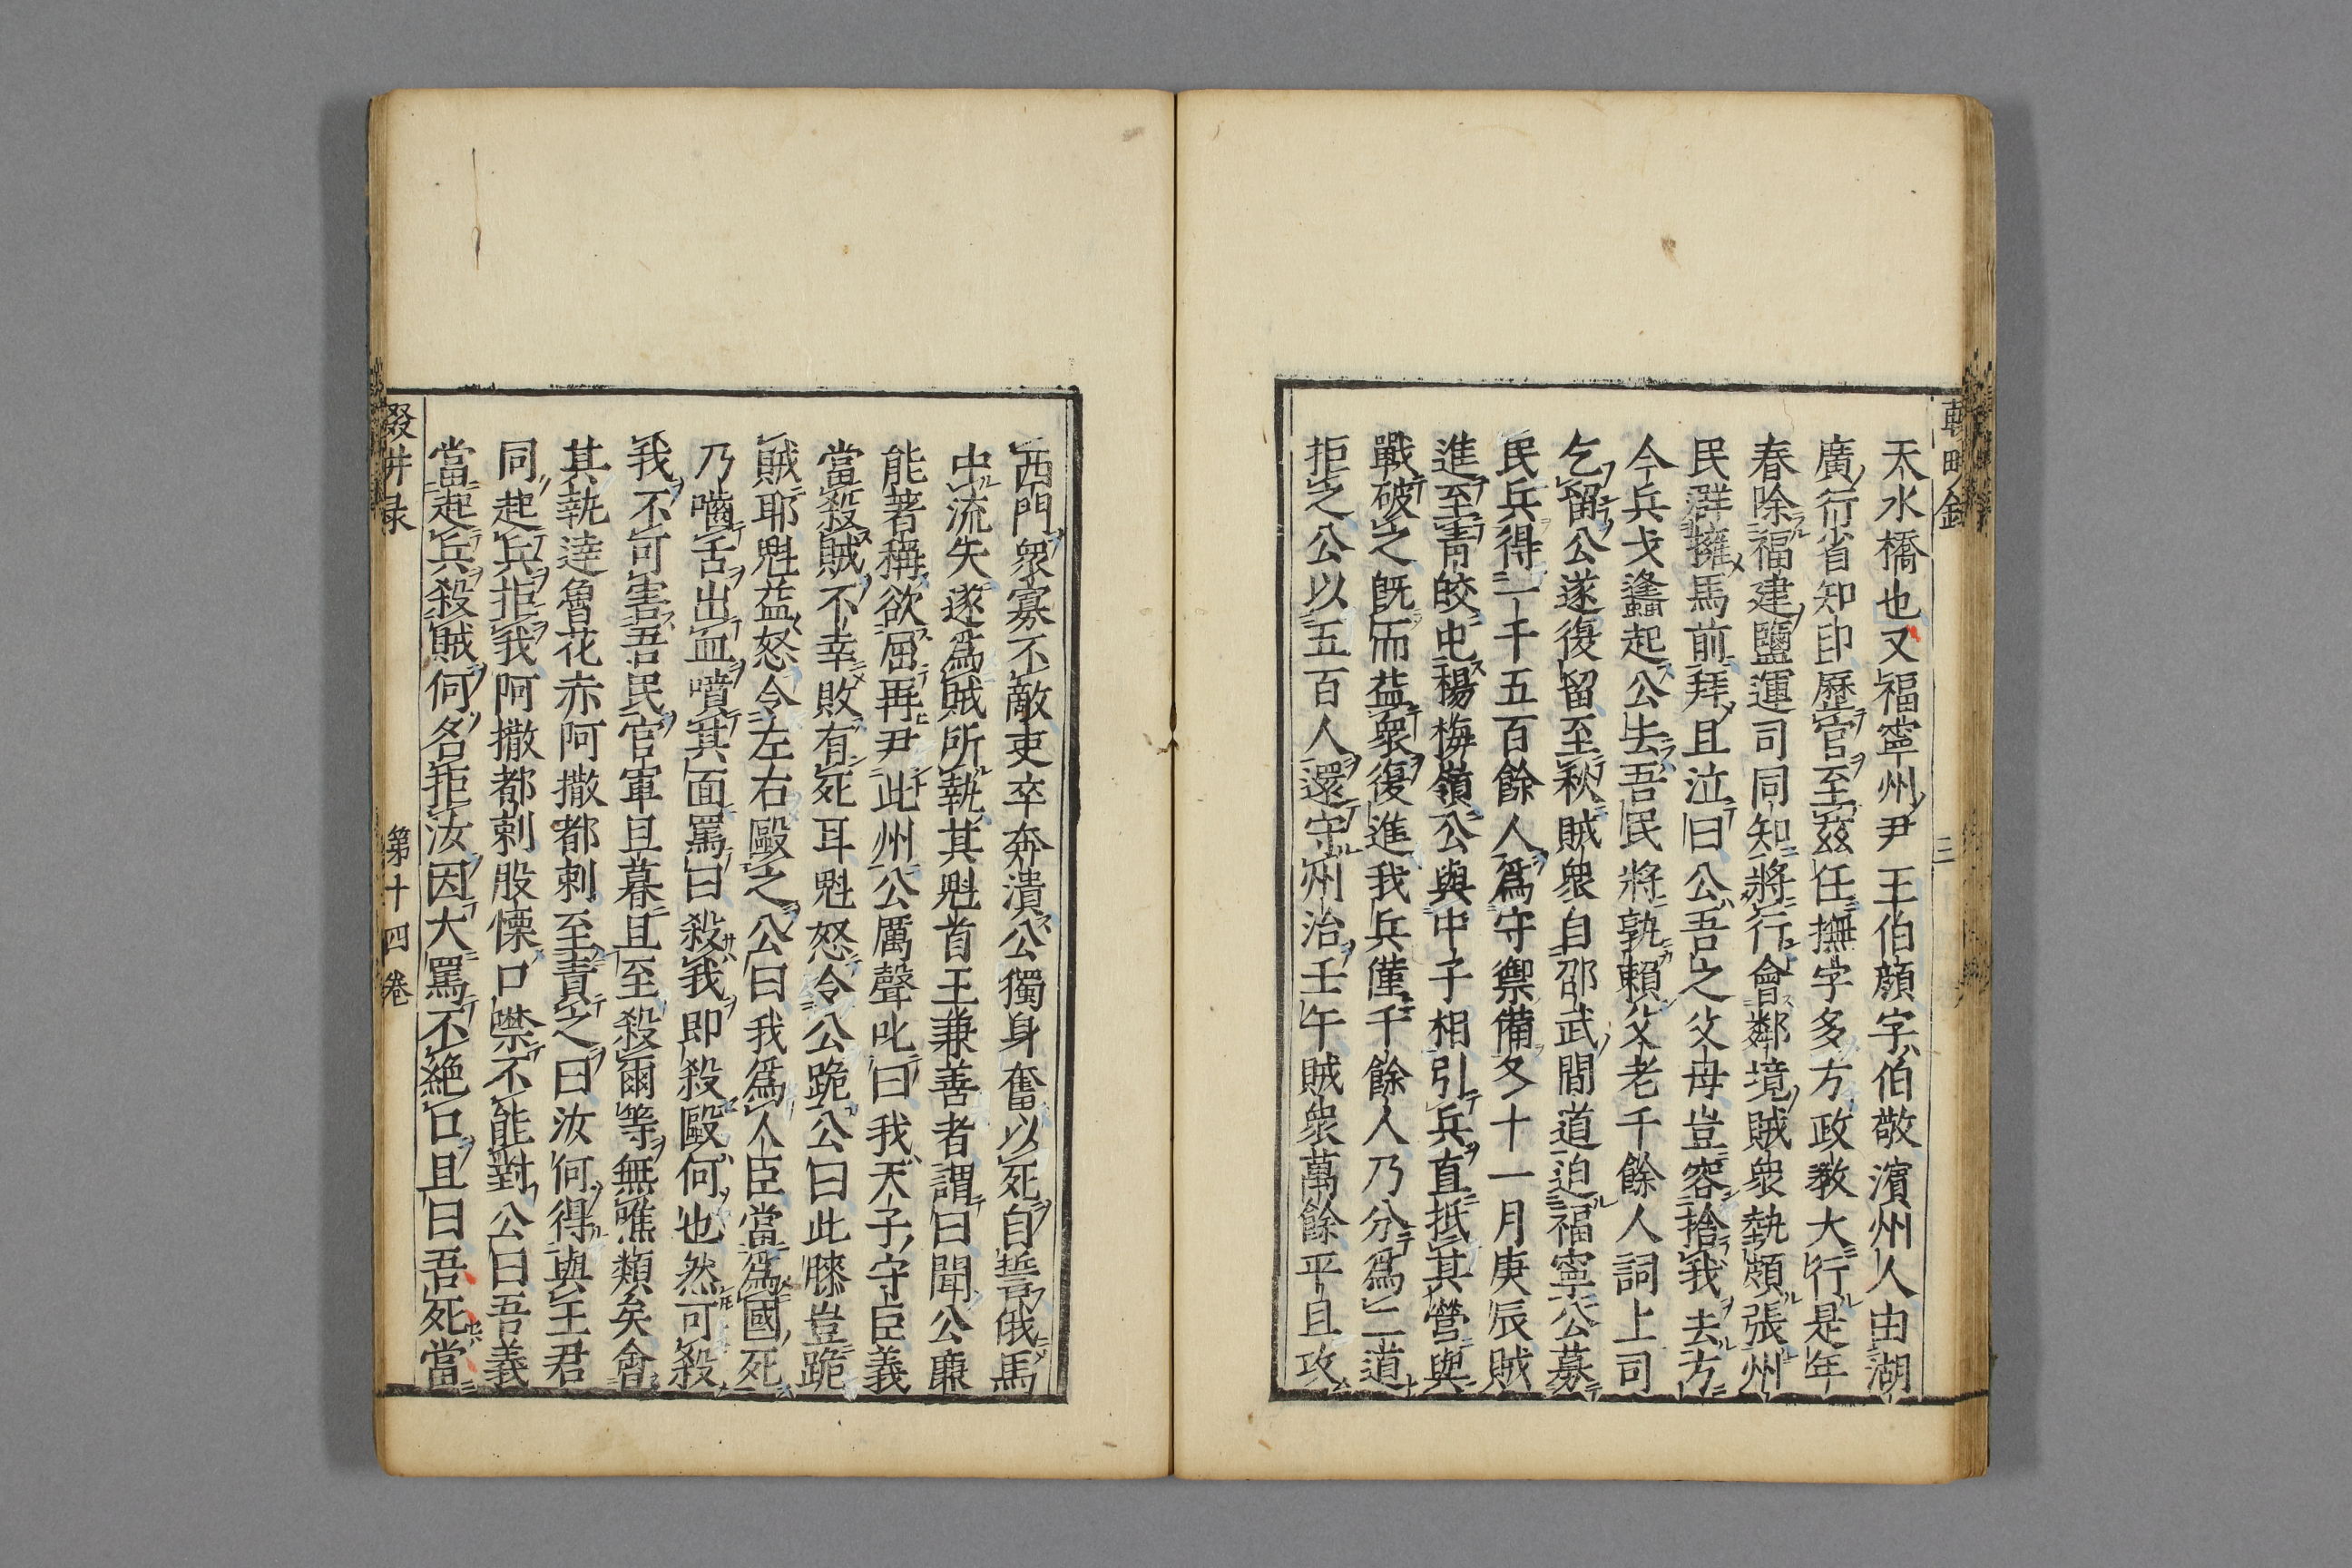 天水橋也又福寧州尹王伯顔字伯敬濱州人由湖
廣行省知印歷官至茲任撫字多方政教大行是年
春除福建鹽運司同知將行會鄰境賊衆執頗張州
民群擁馬前拜且泣曰公吾之父母豈容捨我去方
今兵戈蠭起公去吾民將孰賴父老千餘人詞上司
乞留公遂復留至秋賊衆自邵武間道迫福寧公募
民兵得二千五百餘人爲守禦備冬十一月庚辰賊
進至靑皎屯楊梅嶺公與中子相引兵直抵其營與
戰破之旣而益衆復進我兵僅千餘人乃分爲二道
拒之公以五百人還守州治壬午賊衆萬餘平旦攻
三
西門衆寡不敵吏卒奔潰公獨身奮以死自誓俄馬
中流矢遂爲賊所執其魁首王兼善者謂曰聞公廉
能著稱欲屈再尹此州公厲聲叱曰我天子守臣義
當殺賊不幸敗有死耳魁怒令公跪公曰此膝豈跪
賊耶魁益怒令左右毆之公曰我爲人臣當爲國死
乃嚙舌出血噴其面罵曰殺我即殺毆何也然可殺
我不可害吾民官軍旦暮且至殺爾等無噍類矣會
其執達魯花赤阿撒都剌至責之曰汝何得與王君
同起兵拒我阿撒都剌股慄口噤不能對公曰吾義
當起兵殺賊何名拒汝因大罵不絶口且曰吾死當
輟畊录
第十四卷